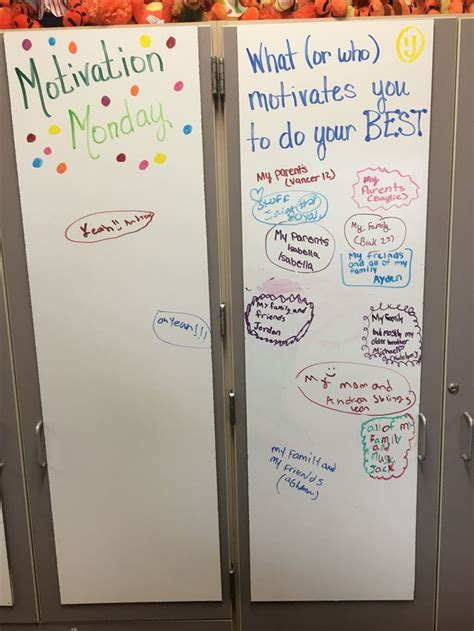 Motivation
Monday
Yeah!!
oh Yeah!!!
What (or who)
motivates you
to do your BEST
My Parents
(Vancer 12)
Stuff
My
Parents
My Parents
Isabella
Isabella
My Family
(Blok 23)
My freinds
and all of my
family
Ayden
My family and
friends
Jordan
My Family
but mostly my
older brother
Michael
My mom and
Andrea
leon
all of my
family
and
Music
Jack
my Family and
my Friends